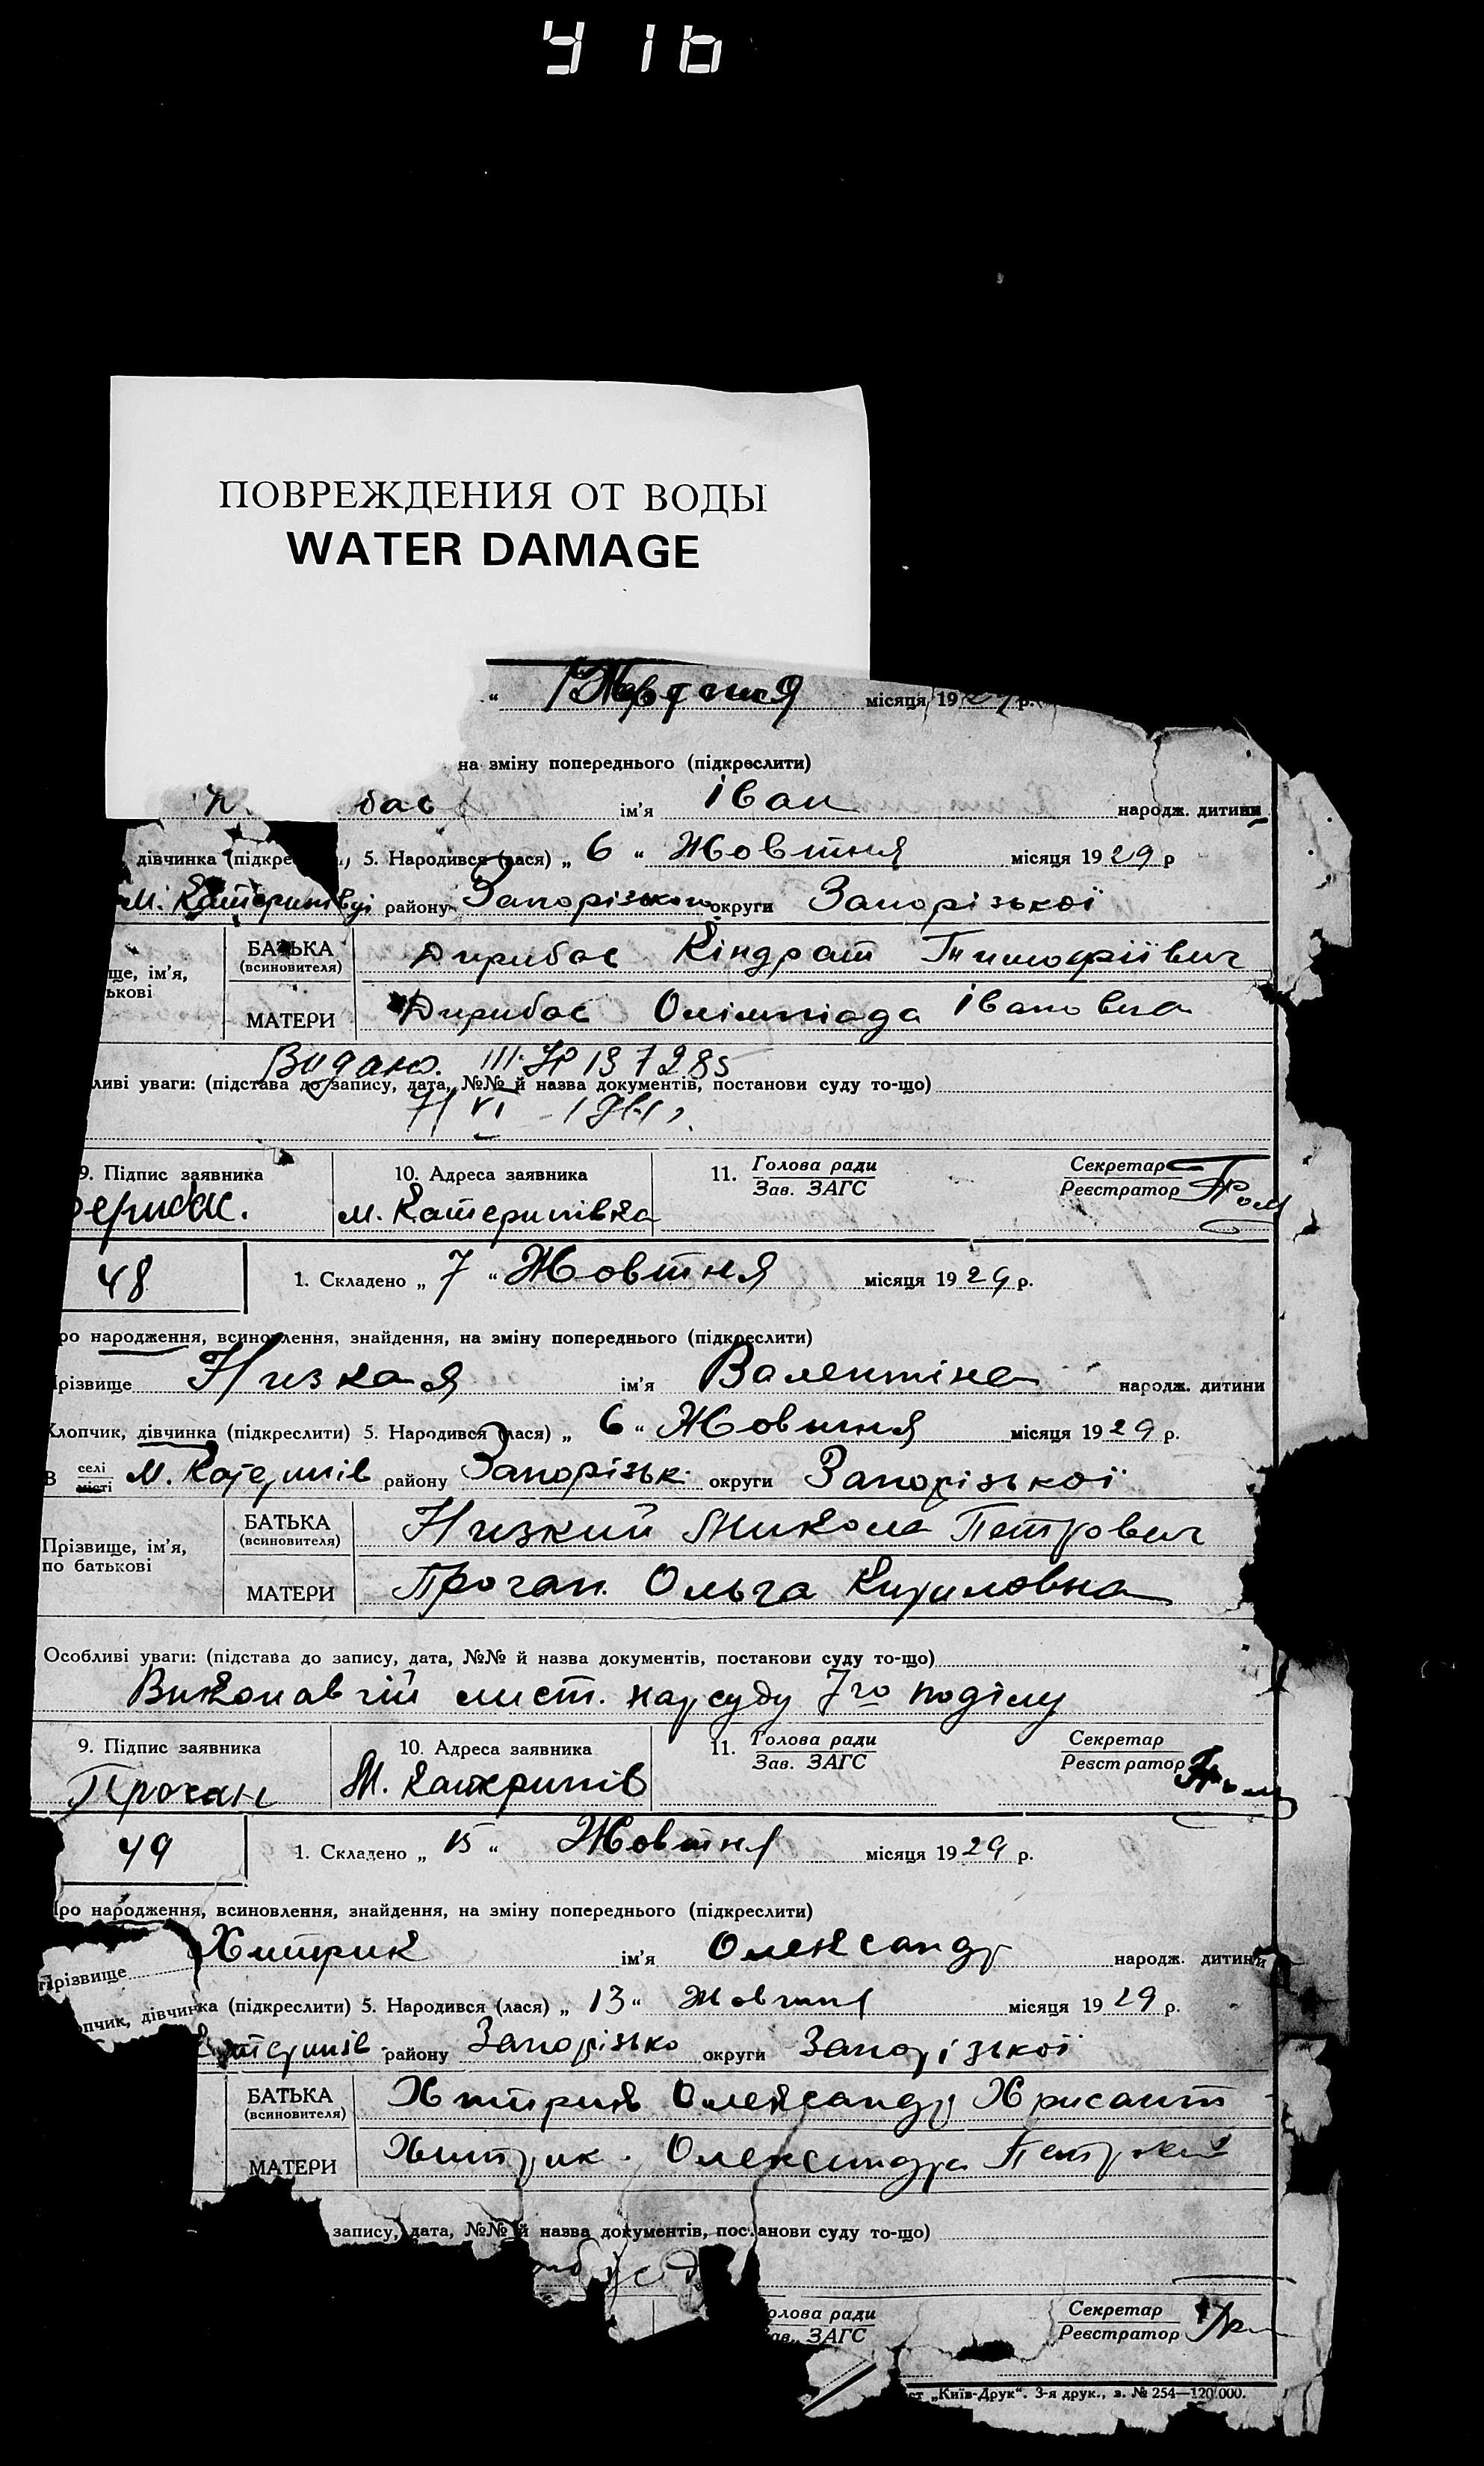 416
ПОВРЕЖДЕНИЯ ОТ ВОДЫ
WATER DAMAGE
“ Жовтня місяця 1929 р.
на зміну попереднього (підкреслити)
бас ім’я Іван народж. дитини
дівчинка (підкре , 5. Народився (лася) „ 6 “ Жовтня місяця 1929 р
м. Катеринівці району Запорізького округи Запорізької
БАТЬКА Дирибас Кіндрат Тимофіївич
ще, ім’я, (всиновителя)
ькові
МАТЕРИ Дирибас Олімпіада Івановна
Видано. III. 197285
ливі уваги: (підстава до запису, дата, №№ й назва документів, постанови суду то-що)
VI
9. Підпис заявника 10. Адреса заявника 11. Голова ради Секретар
Зав. ЗАГС Реєстратор
м. Катеринівка
48 1. Складено „ 7 “ Жовтня місяця 1929 р.
ро народження, всиновлення, знайдення, на зміну попереднього (підкреслити)
різвище Низкая ім’я Валентіна народж. дитини
Хлопчик, дівчинка (підкреслити) 5. Народився (лася) „ 6 “ Жовтня місяця 1929 р.
В селі місті м. Катеринів району Запорізьк. округи Запорізької
БАТЬКА Низкий Микола Петрович
Прізвище, ім’я, (всиновителя)
по батькові
МАТЕРИ Прочан. Ольга Кириловна
Особливі уваги: (підстава до запису, дата, №№ й назва документів, постанови суду то-що)
Виконавчій лист. нарсуду 7го поділу
9. Підпис заявника 10. Адреса заявника 11. Голова ради Секретар
Зав. ЗАГС Реєстратор
Прочан М. Катеринів
49 1. Складено „ 15 “ Жовтня місяця 1929 р.
Про народження, всиновлення, знайдення, на зміну попереднього (підкреслити)
Прізвище Хитрик ім’я Олександр народж. дитини
опчик, дівчинка (підкреслити) 5. Народився (лася) „ 13 “ Жовтня місяця 1929 р.
Катеринів району Запорізько округи Запорізької
БАТЬКА Хитрик Олександр Хрисант
(всиновителя)
МАТЕРИ Хитрик. Олександра
запису, дата, №№ й назва документів, постанови суду то-що)
олова ради Секретар
ав. ЗАГС Реєстратор
ст „Київ-Друк“. 3-я друк., з. № 254—120.000.